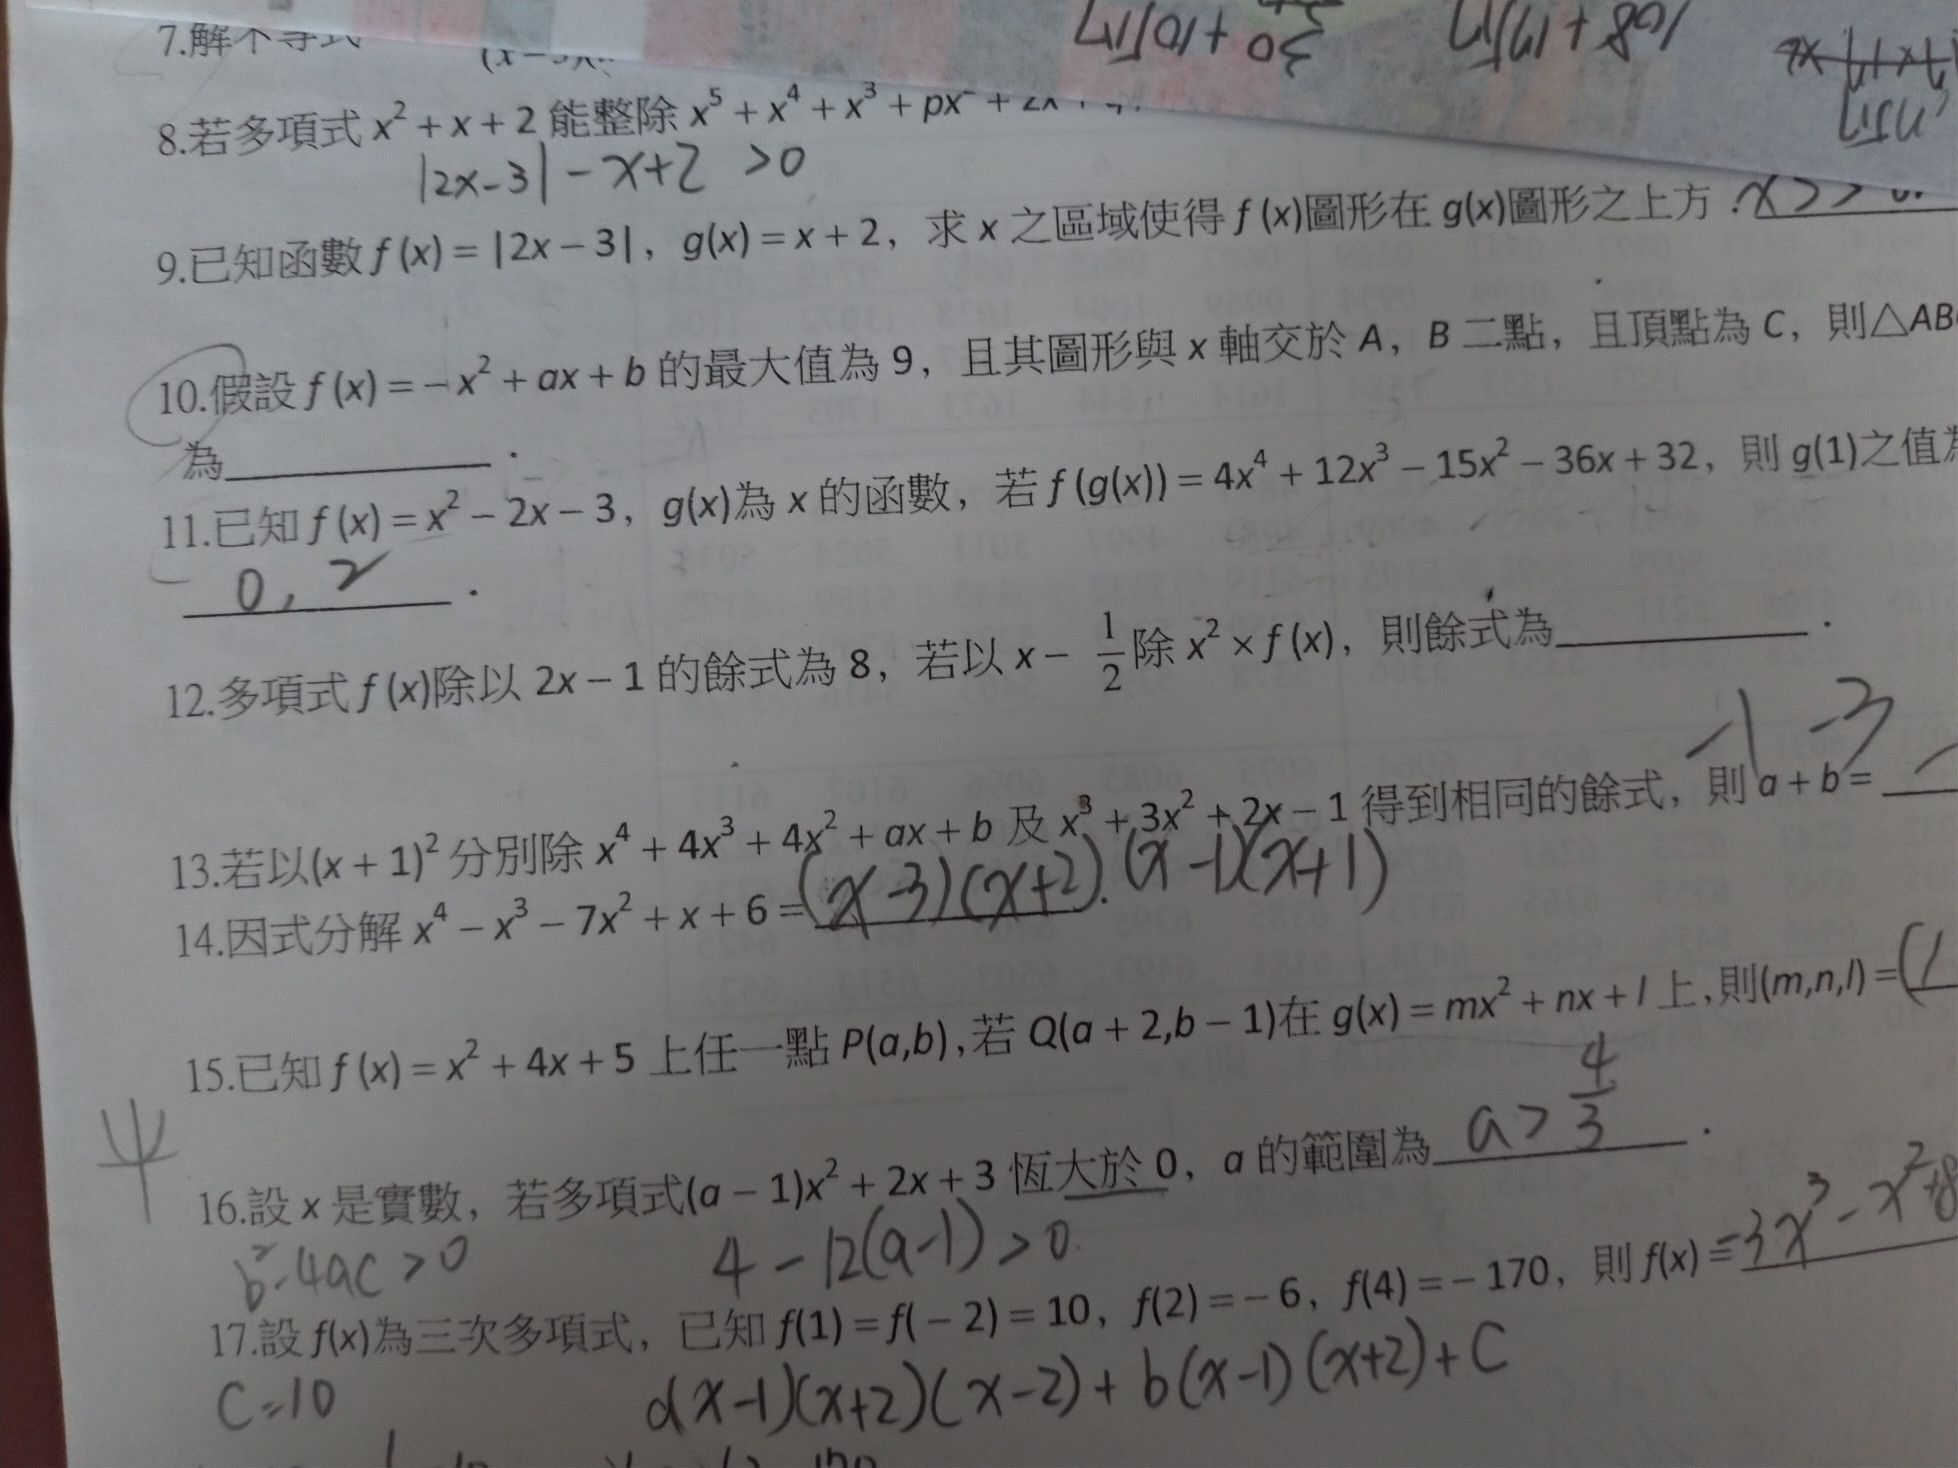 30+10√17
108+17√17
7.解不等式
8.若多項式 x²+x+2 能整除 x⁵+x⁴+x³+px
|2x-3|-x+2 >0
9.已知函數 f(x)=|2x-3|，g(x)=x+2，求 x 之區域使得 f(x)圖形在 g(x)圖形之上方：x>
10.假設 f(x)=-x²+ax+b 的最大值為 9，且其圖形與 x 軸交於 A，B 二點，且頂點為 C，則△AB
為__________．
11.已知 f(x)=x²-2x-3，g(x)為 x 的函數，若 f(g(x))=4x⁴+12x³-15x²-36x+32，則 g(1)之值為
0, 2．
12.多項式 f(x)除以 2x-1 的餘式為 8，若以 x-1/2 除 x²×f(x)，則餘式為__________．
-1 -3
13.若以(x+1)²分別除 x⁴+4x³+4x²+ax+b 及 x³+3x²+2x-1 得到相同的餘式，則 a+b=
14.因式分解 x⁴-x³-7x²+x+6=(x-3)(x+2).(x-1)(x+1)
15.已知 f(x)=x²+4x+5 上任一點 P(a,b),若 Q(a+2,b-1)在 g(x)=mx²+nx+l 上,則(m,n,l)=(1
16.設 x 是實數，若多項式(a-1)x²+2x+3 恆大於 0，a 的範圍為 a>4/3．
b²-4ac>0 4-12(a-1)>0
17.設 f(x)為三次多項式，已知 f(1)=f(-2)=10，f(2)=-6，f(4)=-170，則 f(x)=-3x³-x²+8
C=10 a(x-1)(x+2)(x-2)+b(x-1)(x+2)+C